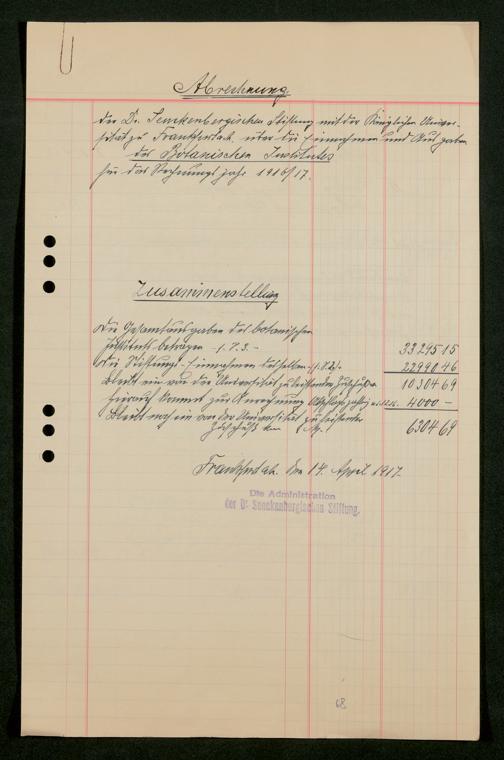 Abrechnung
der Dr. Senckenbergischen Stiftung mit der Königlichen Univer-
sität zu Frankfurt a/M. über die Einnahmen und Ausgaben
des Botanischen Institutes
für das Rechnungsjahr 1916/17.
Zusammenstellung
Die Gesamtausgaben des botanischen
Instituts betragen 33295 15
Die Stiftungs-Einnahmen desselben 22990 46
bleibt ein von der Universität zu leistender Zuschuß 10304 69
hierauf kommt zur Anrechnung Abschlagszahlg 4000 -
bleibt noch ein von der Universität zu leistender
Zuschuß von 6304 69
Frankfurt a/M. den 14. April 1917.
Die Administration
der Dr. Senckenbergischen Stiftung.
68